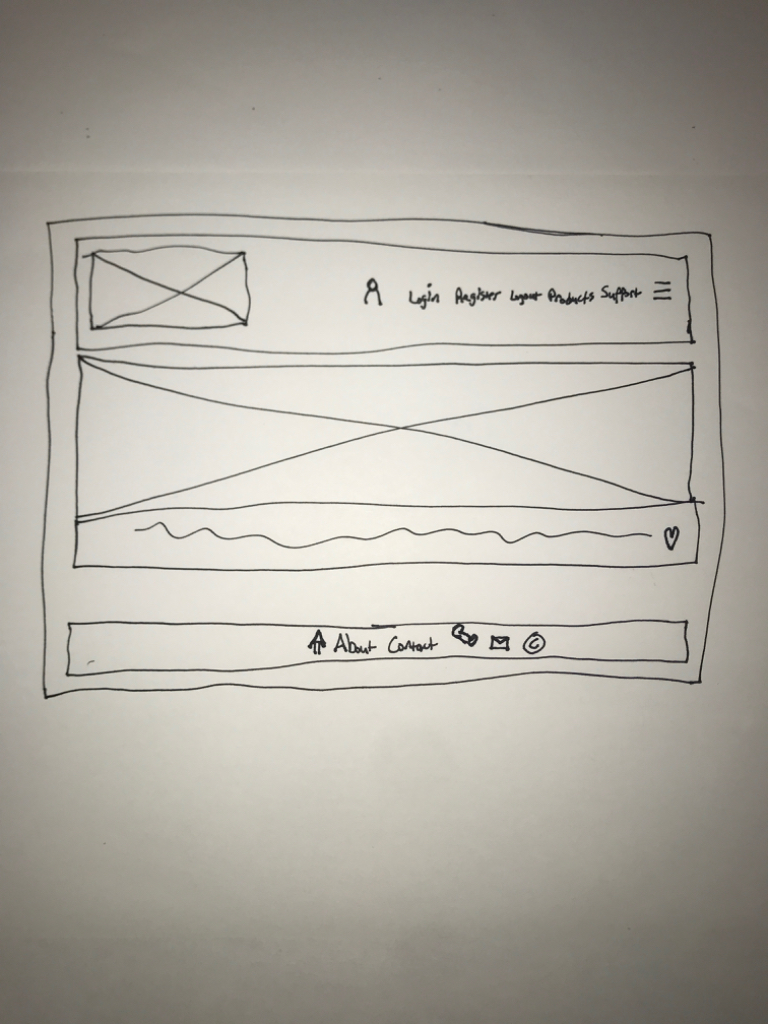 Login Register Logout Products Support
About Contact ©